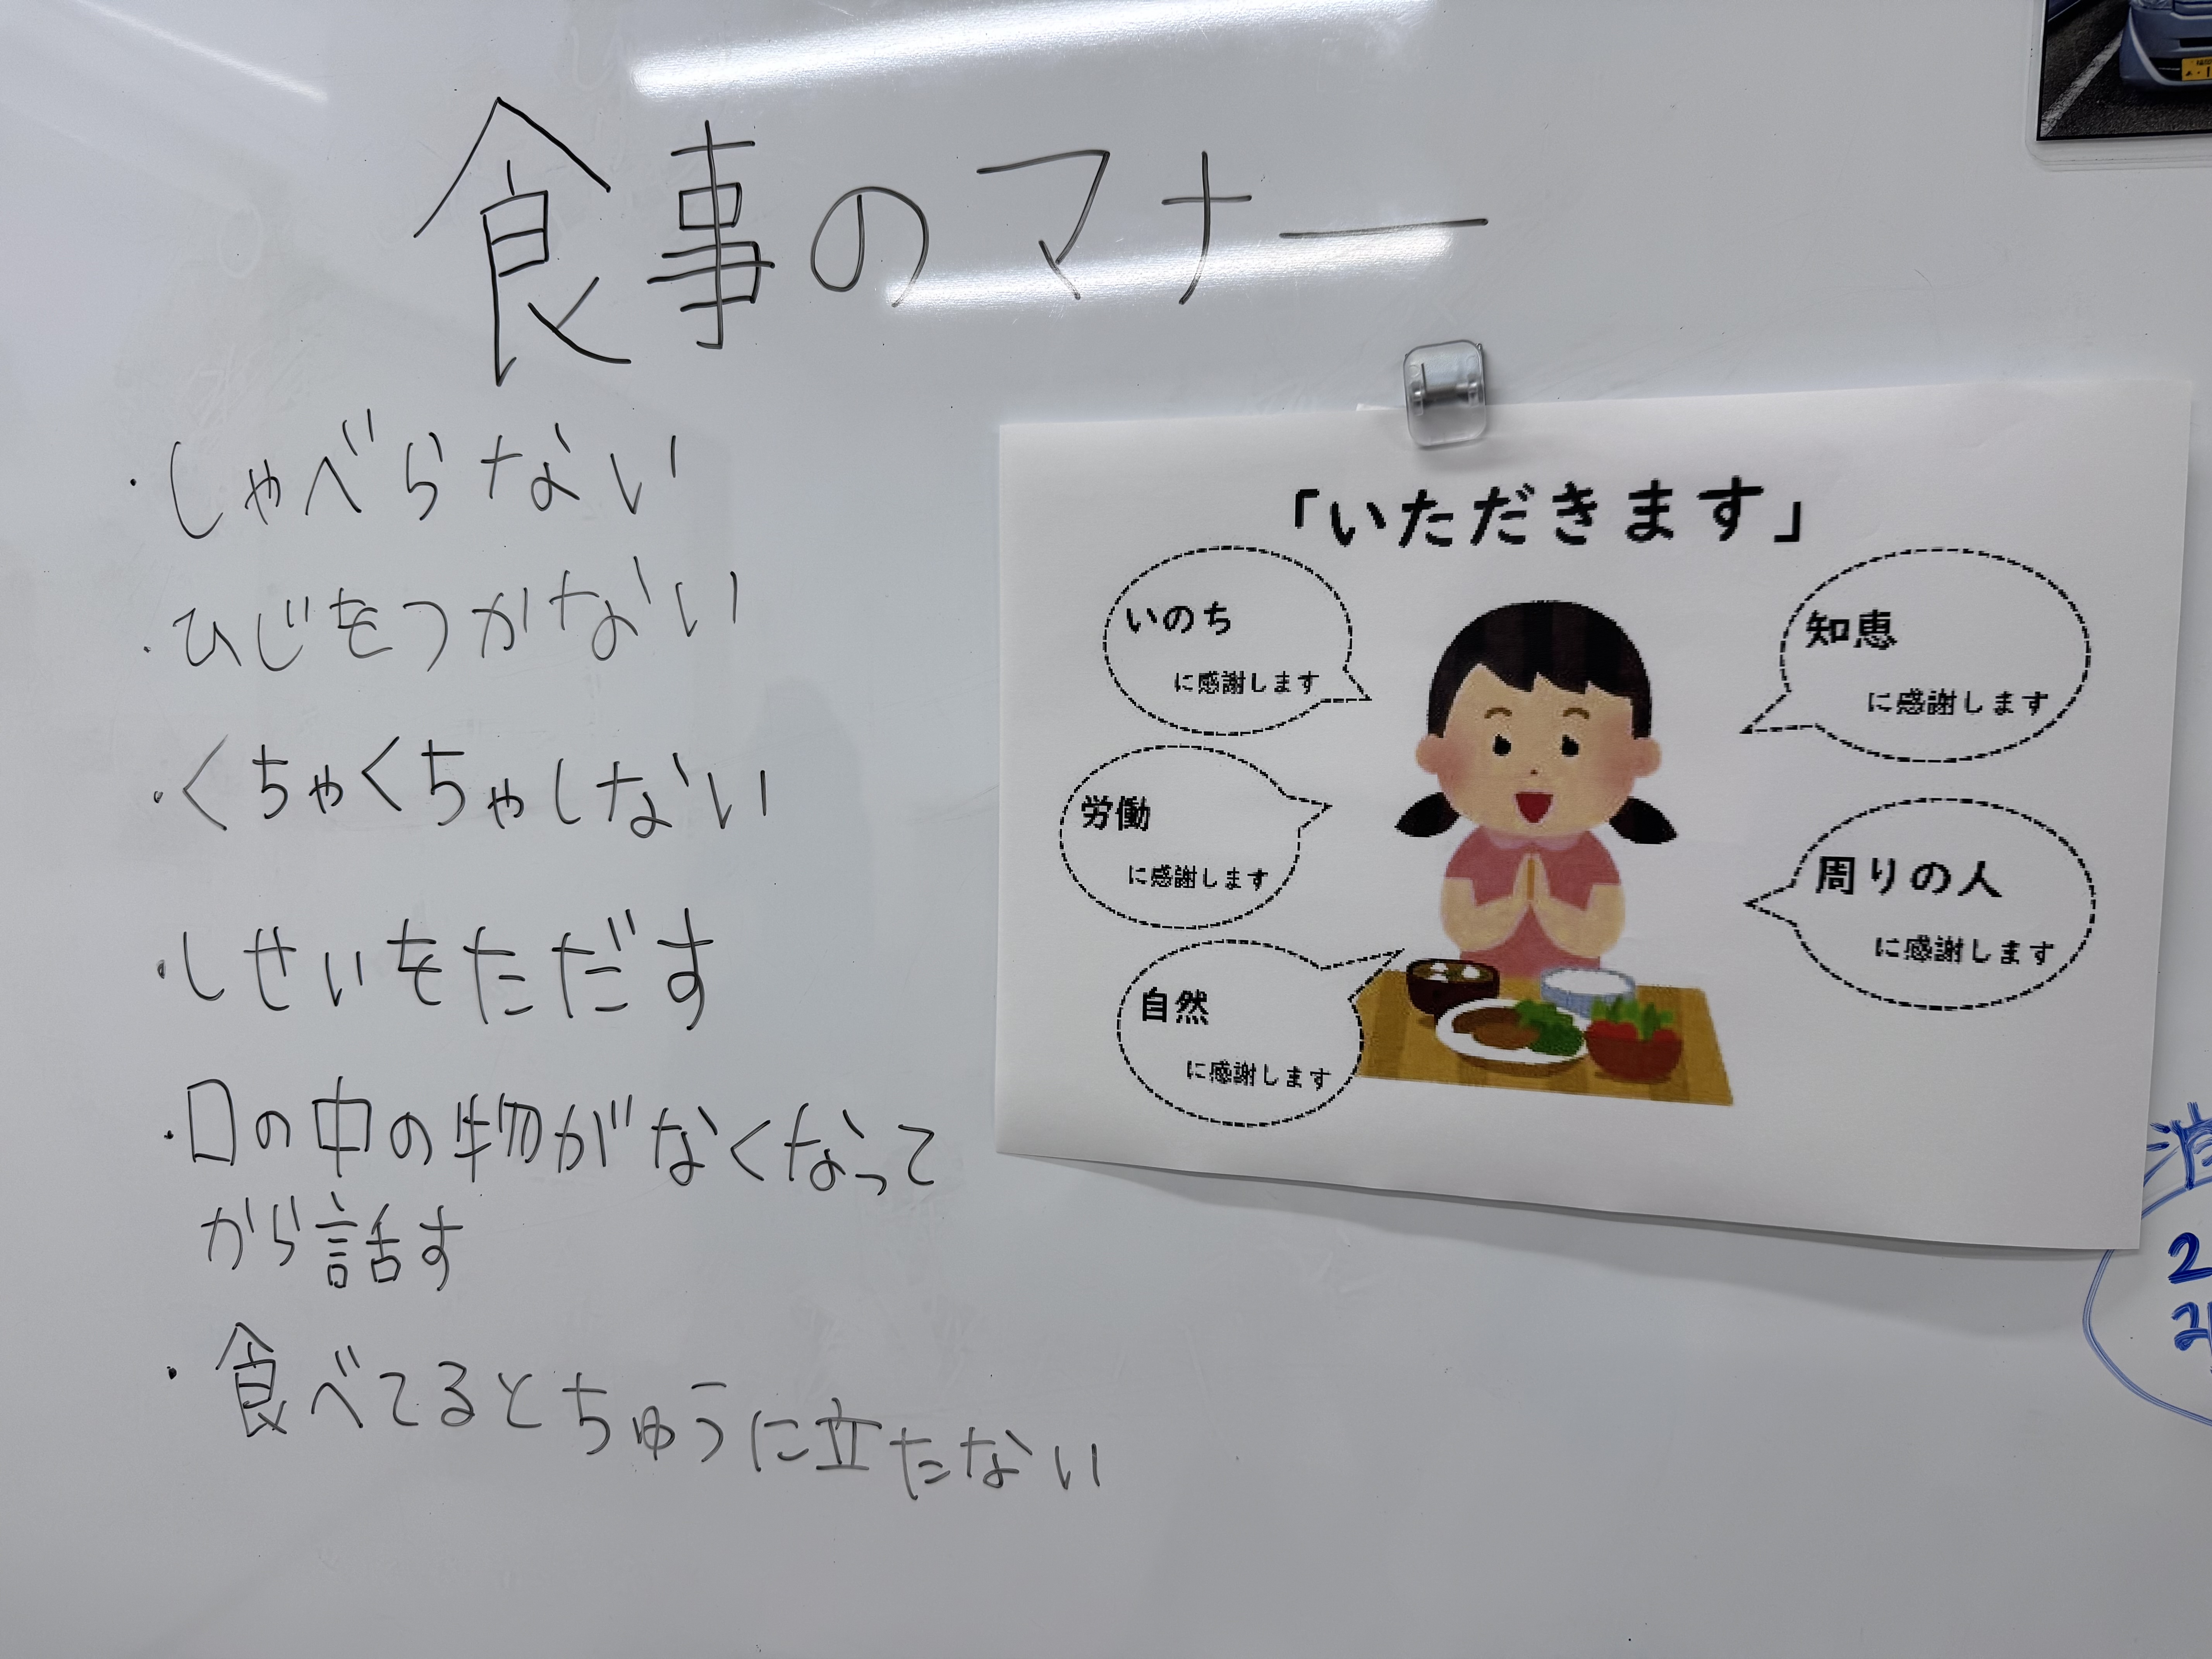 食事のマナー
・しゃべらない
・ひじをつかない
・くちゃくちゃしない
・しせいをただす
・口の中の物がなくなって
から話す
・食べてるとちゅうに立たない
「いただきます」
いのち
に感謝します
労働
に感謝します
自然
に感謝します
知恵
に感謝します
周りの人
に感謝します
2